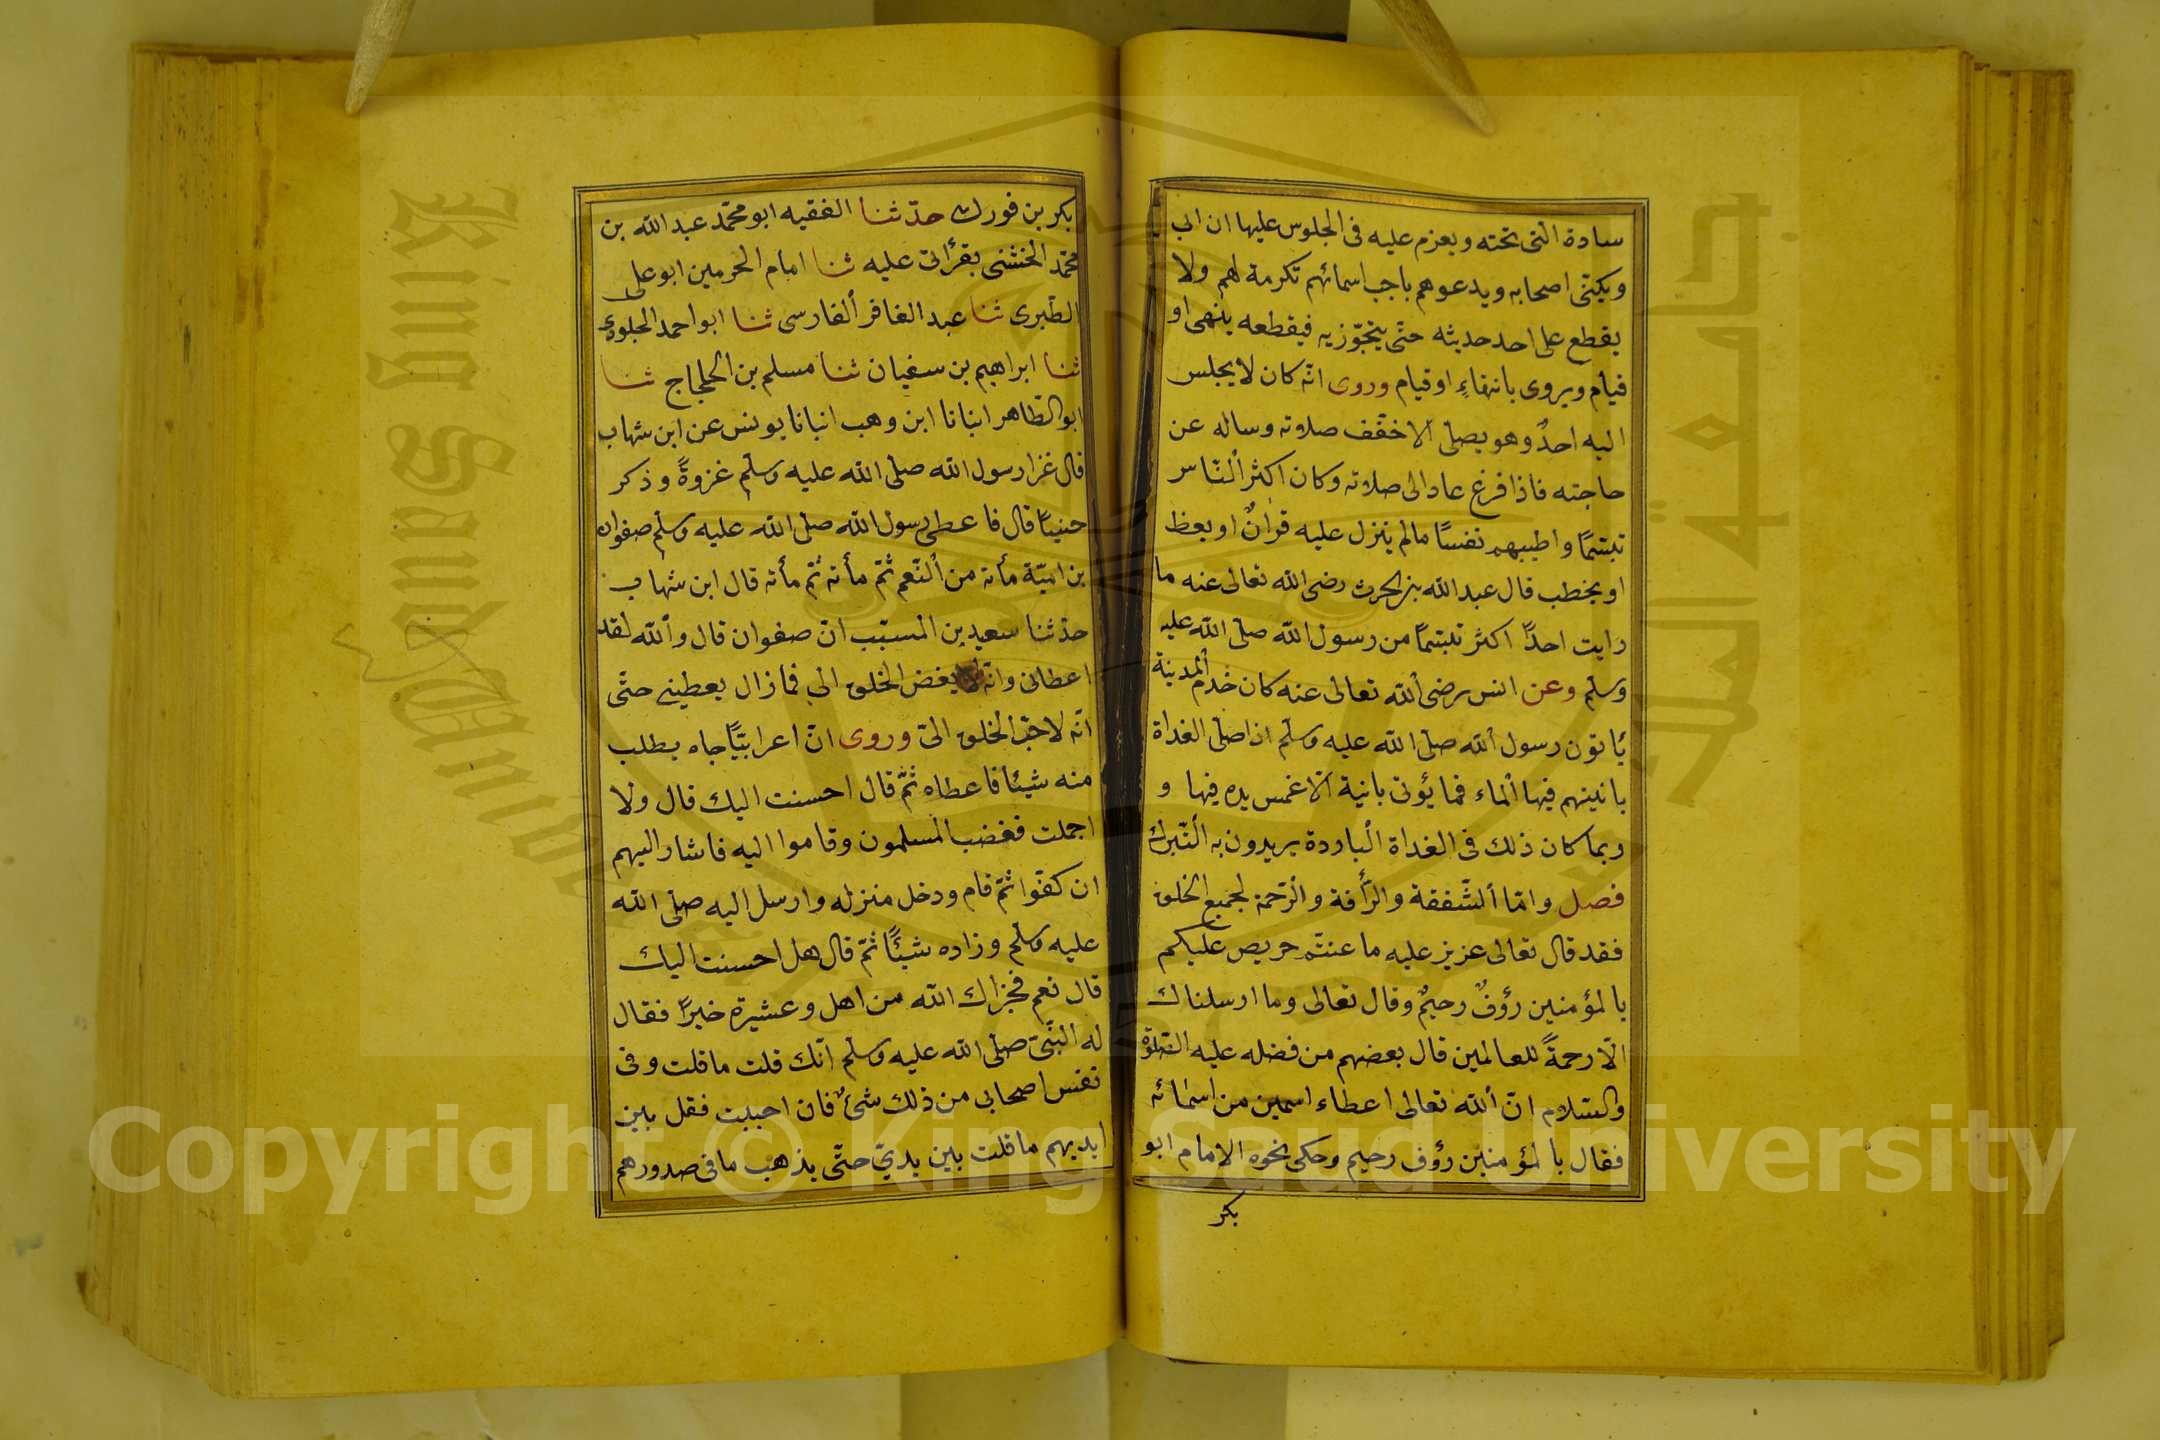 سادة التى تحته ويعزم عليه فى الجلوس عليها ان ابى
ويكنّى اصحابه ويدعوهم باحب اسمائهم تكرمة لهم ولا
يقطع على احد حديثه حتّى يتجوّز يه فيقطعه ينهى او
قيام ويروى بانتهاءٍ او قيام وروى انّه كان لا يجلس
اليه احدٌ وهو يصلّى الا خفّف صلاته وساله عن
حاجته فاذا فرغ عاد الى صلاته وكان اكثر ألنّاس
تبسّمًا واطيبهم نفسًا مالم ينزل عليه قرانٌ او يعظ
او يخطب قال عبد الله بن الحرث رضى الله تعالى عنه ما
رايت احدًا اكثر تبسّمًا من رسول الله صلّى الله عليه
وسلّم وعن انس رضى ألله تعالى عنه كان خدم ألمدينة
يأتون رسول ألله صلّى الله عليه وسلّم اذا صلّى الغداة
بانيتهم فيها ألماء فما يؤتى بانية الّا غمس يده فيها و
ربما كان ذلك فى الغداة ألباردة يريدون به ألتّبرك
فصل وامّا ألشّفقة والرّأفة والرّحمة لجميع الخلق
فقد قال تعالى عزيز عليه ما عنتّم حريص عليكم
بالمؤمنين رؤفٌ رحيمٌ وقال تعالى وما ارسلناك
الّا رحمةً للعالمين قال بعضهم من فضله عليه الصّلوة
والسّلام انّ ألله تعالى اعطاه اسمين من اسمائه
فقال بالمؤمنين رؤف رحيم وحكى نحوه الامام ابو
بكر
بكر بن فورك حدّثنا الفقيه ابو محمّد عبد الله بن
محمّد الخشنى بقرأتى عليه ثنا امام الحرمين ابو على
الطّبرى ثنا عبد الغافر ألفارسى ثنا ابو احمد الجلودى
ثنا ابراهيم بن سفيان ثنا مسلم بن الحجاج ثنا
ابو الطّاهر انبانا ابن وهب انبانا يونس عن ابن شهاب
قال غزا رسول الله صلّى الله عليه وسلّم غزوةً وذكر
حنينًا قال فاعطى رسول الله صلّى الله عليه وسلّم صفوان
بن اميّة مأته من ألنّعم ثمّ مأته ثمّ مأته قال ابن شهاب
حدثنا سعيد بن المسيّب انّ صفوان قال وألله لقد
اعطانى وانّه لابغض الخلق الى فما زال يعطينى حتّى
انّه لاحبّ الخلق الىّ وروى انّ اعرابيًّا جاه يطلب
منه شيئا فاعطاه ثمّ قال احسنت اليك قال ولا
اجملت فغضب المسلمون وقاموا اليه فاشار اليهم
ان كفّوا ثمّ قام ودخل منزله وارسل اليه صلّى الله
عليه وسلّم وزاده شيئًا ثمّ قال هل احسنت اليك
قال نعم فجزاك الله من اهل وعشيرة خيرًا فقال
له النّبىّ صلّى الله عليه وسلّم انّك قلت ما قلت وفى
نفس اصحابى من ذلك شئٌ فان احببت فقل بين
ايديهم ما قلت بين يديّ حتّى يذهب ما فى صدورهم
جامعة الملك سعود
King Saud University
Copyright © King Saud University